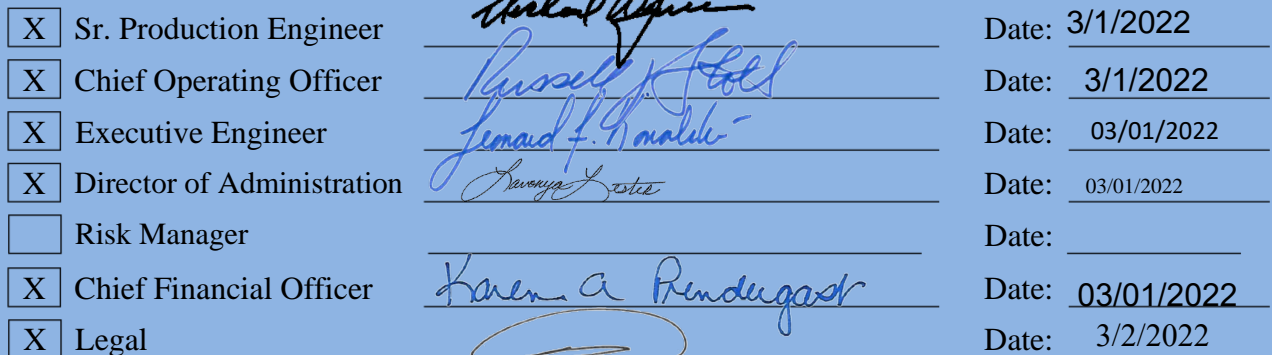 X Sr. Production Engineer Date: 3/1/2022
X Chief Operating Officer Russell J. Date: 3/1/2022
X Executive Engineer Date: 03/01/2022
X Director of Administration Lavonya Lester Date: 03/01/2022
Risk Manager Date:
X Chief Financial Officer Karen A Pendergast Date: 03/01/2022
X Legal Date: 3/2/2022